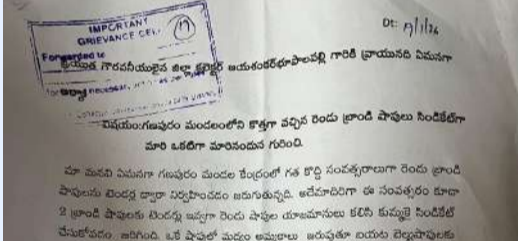 Dt: 19/1/26
IMPORTANT
GRIEVANCE CELL
Forwarded to
గౌరవనీయులైన జిల్లా కలెక్టర్ జయశంకర్‌భూపాలపల్లి గారికి వ్రాయునది ఏమనగా
for necessary
విషయం:గణపురం మండలంలోని కొత్తగా వచ్చిన రెండు బ్రాండి షాపులు సిండికేట్‌గా
మారి ఒకటిగా మారినందున గురించి.
మా మనవి ఏమనగా గణపురం మండల కేంద్రంలో గత కొద్ది సంవత్సరాలుగా రెండు బ్రాండి
షాపులను టెండర్ల ద్వారా నిర్వహించడం జరుగుతున్నది. అదేమాదిరిగా ఈ సంవత్సరం కూడా
2 బ్రాండి షాపులకు టెండర్లు ఇవ్వగా రెండు షాపుల యజమానులు కలిసి కుమ్మక్కై సిండికేట్
చేసుకోవడం జరిగింది. ఒకే షాపులో మద్యం అమ్మకాలు జరుపుతూ బయట బెల్టుషాపులకు